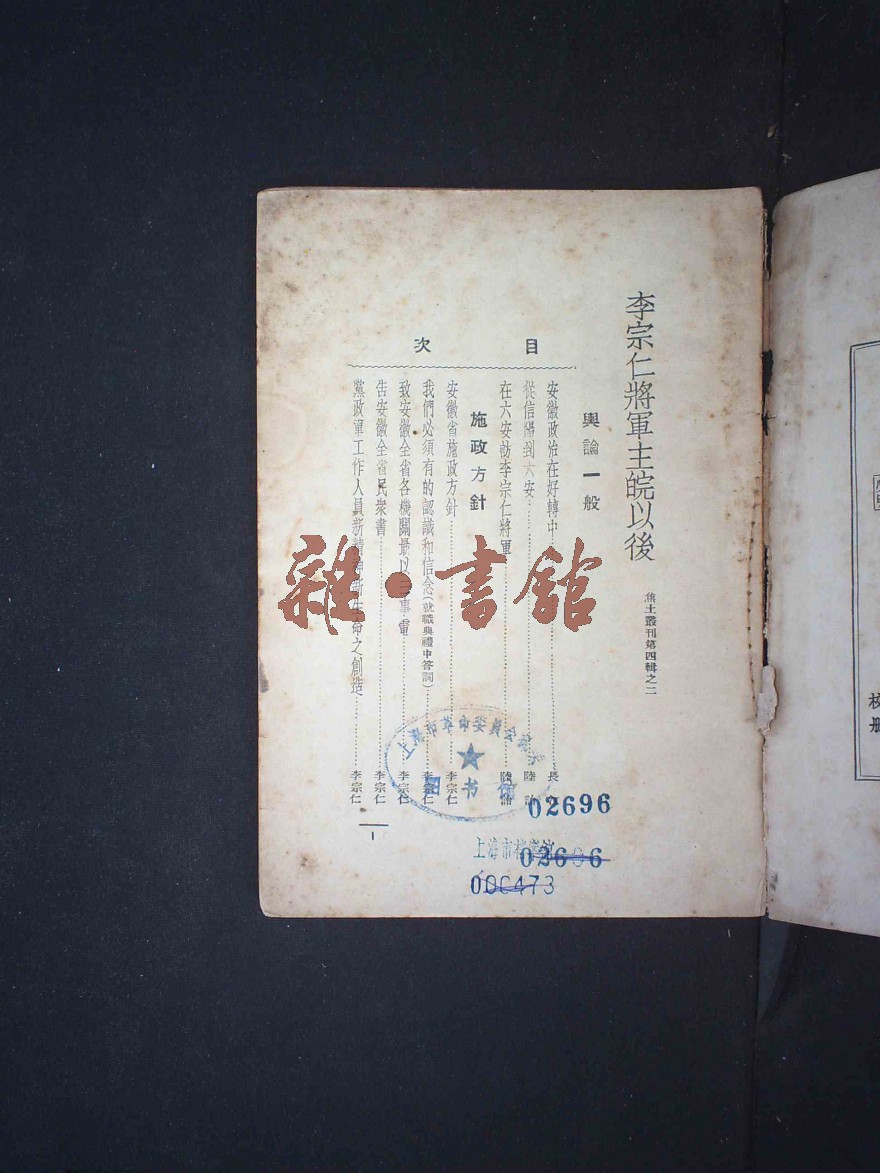 李宗仁將軍主皖以後
焦土叢刊第四輯之二
目次
輿論一般
安徽政治在好轉中 長
從信陽到六安 陸詒
在六安訪李宗仁將軍 陸詒
施政方針
安徽省施政方針 李宗仁
我們必須有的認識和信念(就職典禮中答詞) 李宗仁
致安徽全省各機關最以三事電 李宗仁
告安徽全省民衆書 李宗仁
黨政軍工作人員新精神新生命之創造 李宗仁
一
雜·書館
图书馆
02696
上海市档案馆
02606
000473
校
册